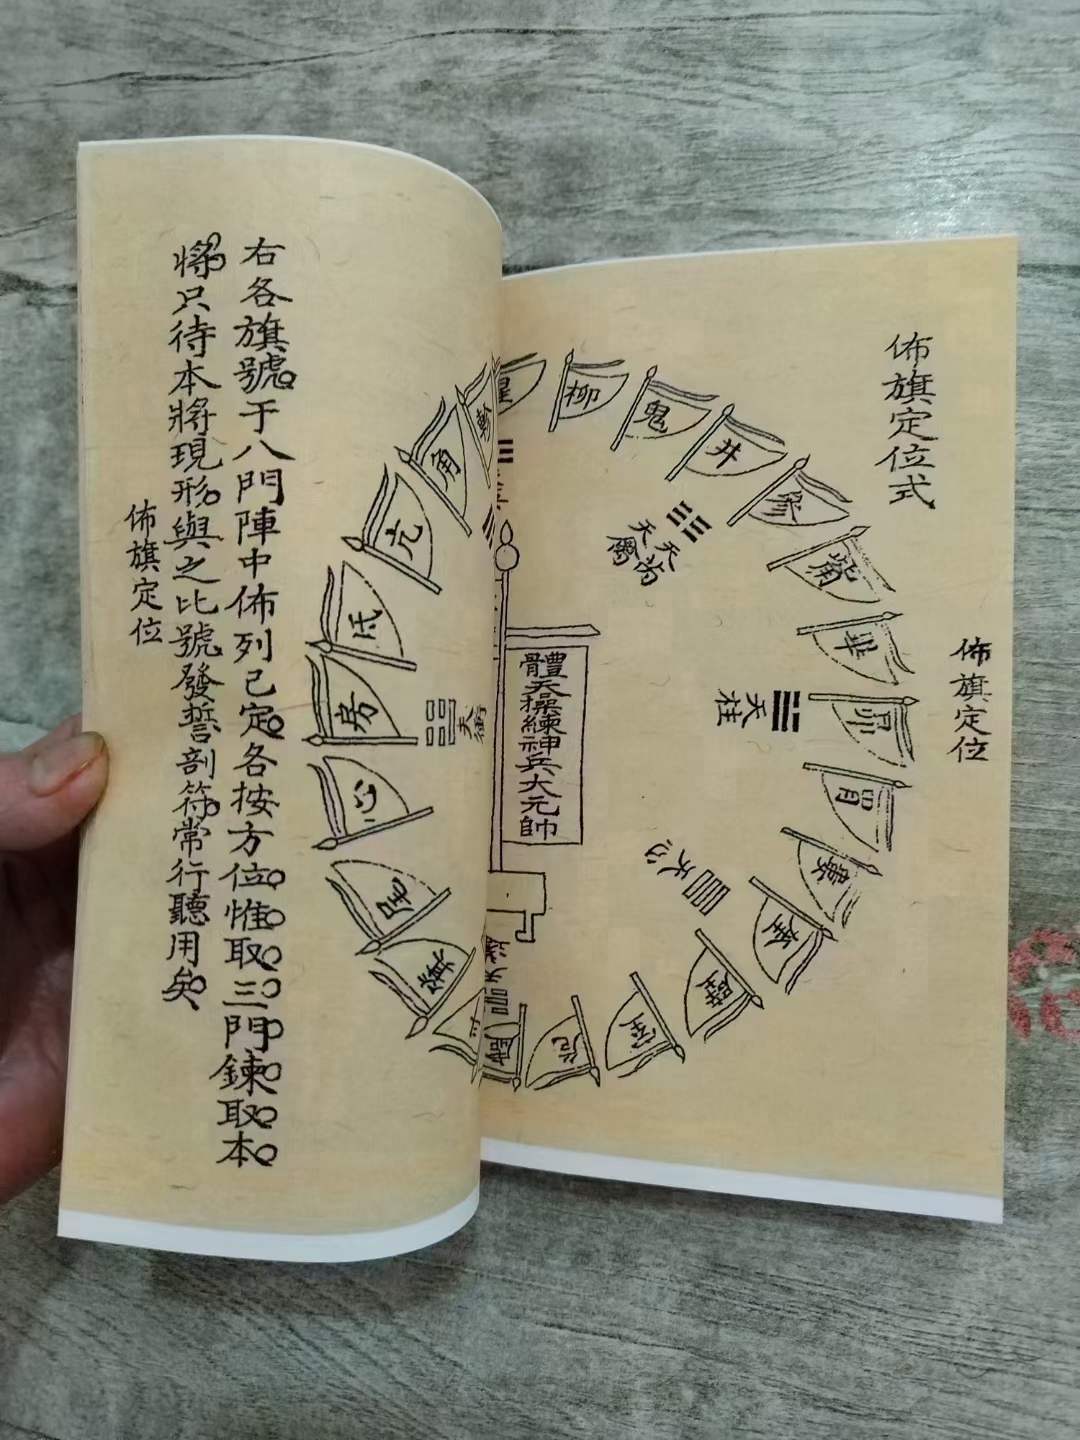 佈旗定位式
佈旗定位
柳
鬼
井
參
觜
畢
昴
胃
婁
奎
壁
室
危
虛
箕
尾
心
房
氐
亢
角
軫
天芮
天禽
天柱
天衝
天蓬
體天操練神兵大元帥
右各旗號于八門陣中佈列已定各按方位惟取三門鍊取本
將只待本將現形與之比號發誓剖符常行聽用矣
佈旗定位